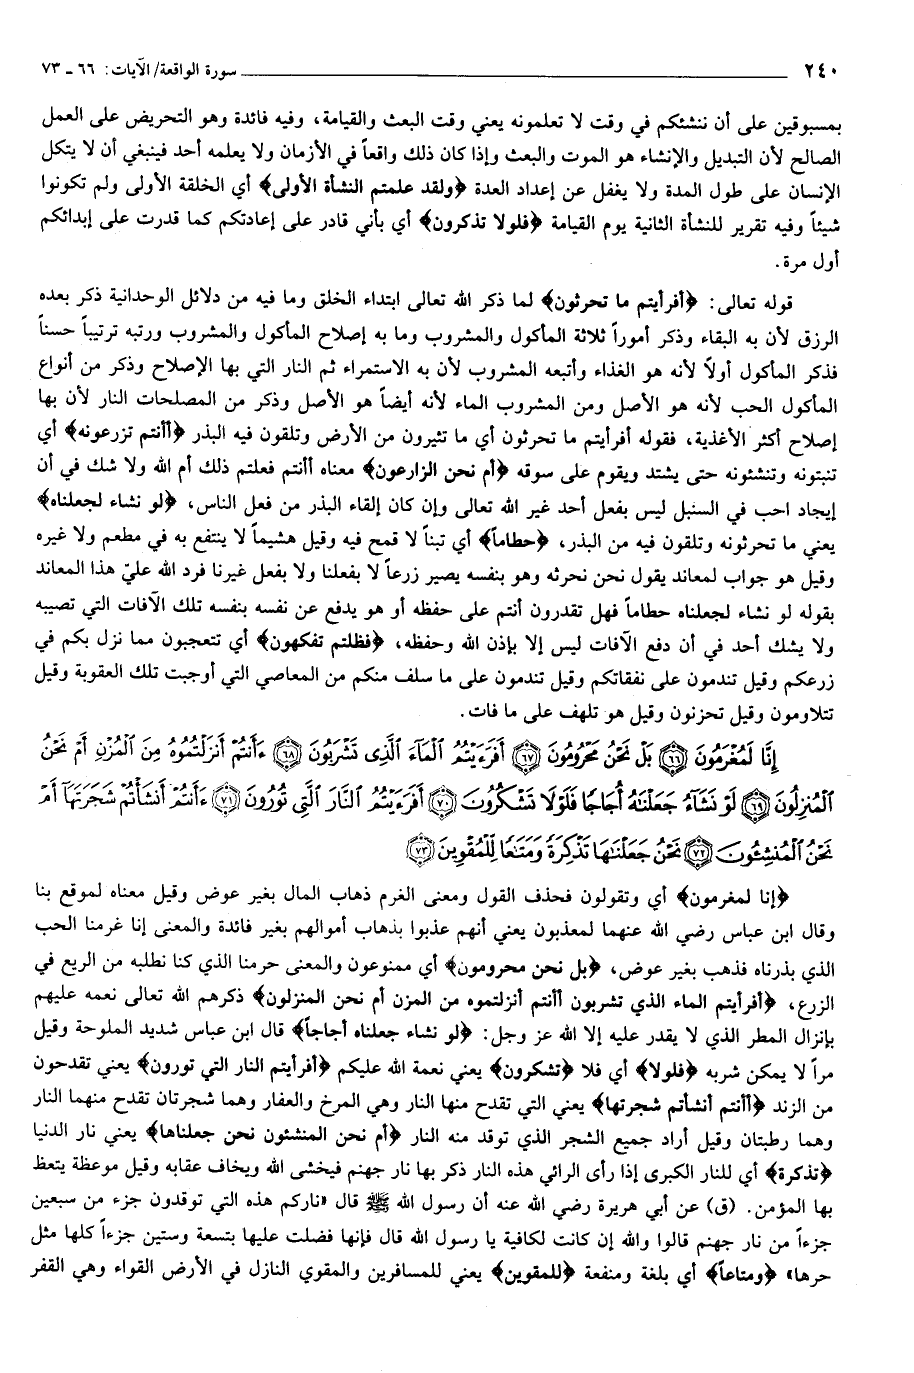 ٢٤٠ سورة الواقعة/ الآيات: ٦٦ ـ ٧٣
بمسبوقين على أن ننشئكم في وقت لا تعلمونه يعني وقت البعث والقيامة، وفيه فائدة وهو التحريض على العمل
الصالح لأن التبديل والإنشاء هو الموت والبعث وإذا كان ذلك واقعاً في الأزمان ولا يعلمه أحد فينبغي أن لا يتكل
الإنسان على طول المدة ولا يغفل عن إعداد العدة ﴿ولقد علمتم النشأة الأولى﴾ أي الخلقة الأولى ولم تكونوا
شيئاً وفيه تقرير للنشأة الثانية يوم القيامة ﴿فلولا تذكرون﴾ أي بأني قادر على إعادتكم كما قدرت على إبدائكم
أول مرة.
قوله تعالى: ﴿أفرأيتم ما تحرثون﴾ لما ذكر الله تعالى ابتداء الخلق وما فيه من دلائل الوحدانية ذكر بعده
الرزق لأن به البقاء وذكر أموراً ثلاثة المأكول والمشروب وما به إصلاح المأكول والمشروب ورتبه ترتيباً حسناً
فذكر المأكول أولاً لأنه هو الغذاء وأتبعه المشروب لأن به الاستمراء ثم النار التي بها الإصلاح وذكر من أنواع
المأكول الحب لأنه هو الأصل ومن المشروب الماء لأنه أيضاً هو الأصل وذكر من المصلحات النار لأن بها
إصلاح أكثر الأغذية، فقوله أفرأيتم ما تحرثون أي ما تثيرون من الأرض وتلقون فيه البذر ﴿أأنتم تزرعونه﴾ أي
تنبتونه وتنشئونه حتى يشتد ويقوم على سوقه ﴿أم نحن الزارعون﴾ معناه أأنتم فعلتم ذلك أم الله ولا شك في أن
إيجاد احب في السنبل ليس بفعل أحد غير الله تعالى وإن كان إلقاء البذر من فعل الناس، ﴿لو نشاء لجعلناه﴾
يعني ما تحرثونه وتلقون فيه من البذر، ﴿حطاماً﴾ أي تبناً لا قمح فيه وقيل هشيماً لا ينتفع به في مطعم ولا غيره
وقيل هو جواب لمعاند يقول نحن نحرثه وهو بنفسه يصير زرعاً لا بفعلنا ولا بفعل غيرنا فرد الله عليّ هذا المعاند
بقوله لو نشاء لجعلناه حطاماً فهل تقدرون أنتم على حفظه أو هو يدفع عن نفسه بنفسه تلك الآفات التي تصيبه
ولا يشك أحد في أن دفع الآفات ليس إلا بإذن الله وحفظه، ﴿فظلتم تفكهون﴾ أي تتعجبون مما نزل بكم في
زرعكم وقيل تندمون على نفقاتكم وقيل تندمون على ما سلف منكم من المعاصي التي أوجبت تلك العقوبة وقيل
تتلاومون وقيل تحزنون وقيل هو تلهف على ما فات.
إِنَّا لَمُغْرَمُونَ ﴿٦٦﴾ بَلْ نَحْنُ مَحْرُومُونَ ﴿٦٧﴾ أَفَرَءَيْتُمُ ٱلْمَآءَ ٱلَّذِى تَشْرَبُونَ ﴿٦٨﴾ ءَأَنتُمْ أَنزَلْتُمُوهُ مِنَ ٱلْمُزْنِ أَمْ نَحْنُ
ٱلْمُنزِلُونَ ﴿٦٩﴾ لَوْ نَشَآءُ جَعَلْنَٰهُ أُجَاجًا فَلَوْلَا تَشْكُرُونَ ﴿٧٠﴾ أَفَرَءَيْتُمُ ٱلنَّارَ ٱلَّتِى تُورُونَ ﴿٧١﴾ ءَأَنتُمْ أَنشَأْتُمْ شَجَرَتَهَآ أَمْ
نَحْنُ ٱلْمُنشِـُٔونَ ﴿٧٢﴾ نَحْنُ جَعَلْنَٰهَا تَذْكِرَةً وَمَتَٰعًا لِّلْمُقْوِينَ ﴿٧٣﴾
﴿إنا لمغرمون﴾ أي وتقولون فحذف القول ومعنى الغرم ذهاب المال بغير عوض وقيل معناه لموقع بنا
وقال ابن عباس رضي الله عنهما لمعذبون يعني أنهم عذبوا بذهاب أموالهم بغير فائدة والمعنى إنا غرمنا الحب
الذي بذرناه فذهب بغير عوض، ﴿بل نحن محرومون﴾ أي ممنوعون والمعنى حرمنا الذي كنا نطلبه من الريع في
الزرع، ﴿أفرأيتم الماء الذي تشربون أأنتم أنزلتموه من المزن أم نحن المنزلون﴾ ذكرهم الله تعالى نعمه عليهم
بإنزال المطر الذي لا يقدر عليه إلا الله عز وجل: ﴿لو نشاء جعلناه أجاجاً﴾ قال ابن عباس شديد الملوحة وقيل
مراً لا يمكن شربه ﴿فلولا﴾ أي فلا ﴿تشكرون﴾ يعني نعمة الله عليكم ﴿أفرأيتم النار التي تورون﴾ يعني تقدحون
من الزند ﴿أأنتم أنشأتم شجرتها﴾ يعني التي تقدح منها النار وهي المرخ والعفار وهما شجرتان تقدح منهما النار
وهما رطبتان وقيل أراد جميع الشجر الذي توقد منه النار ﴿أم نحن المنشئون نحن جعلناها﴾ يعني نار الدنيا
﴿تذكرة﴾ أي للنار الكبرى إذا رأى الرائي هذه النار ذكر بها نار جهنم فيخشى الله ويخاف عقابه وقيل موعظة يتعظ
بها المؤمن. (ق) عن أبي هريرة رضي الله عنه أن رسول الله ﷺ قال «ناركم هذه التي توقدون جزء من سبعين
جزءاً من نار جهنم قالوا والله إن كانت لكافية يا رسول الله قال فإنها فضلت عليها بتسعة وستين جزءاً كلها مثل
حرها» ﴿ومتاعاً﴾ أي بلغة ومنفعة ﴿للمقوين﴾ يعني للمسافرين والمقوي النازل في الأرض القواء وهي القفر